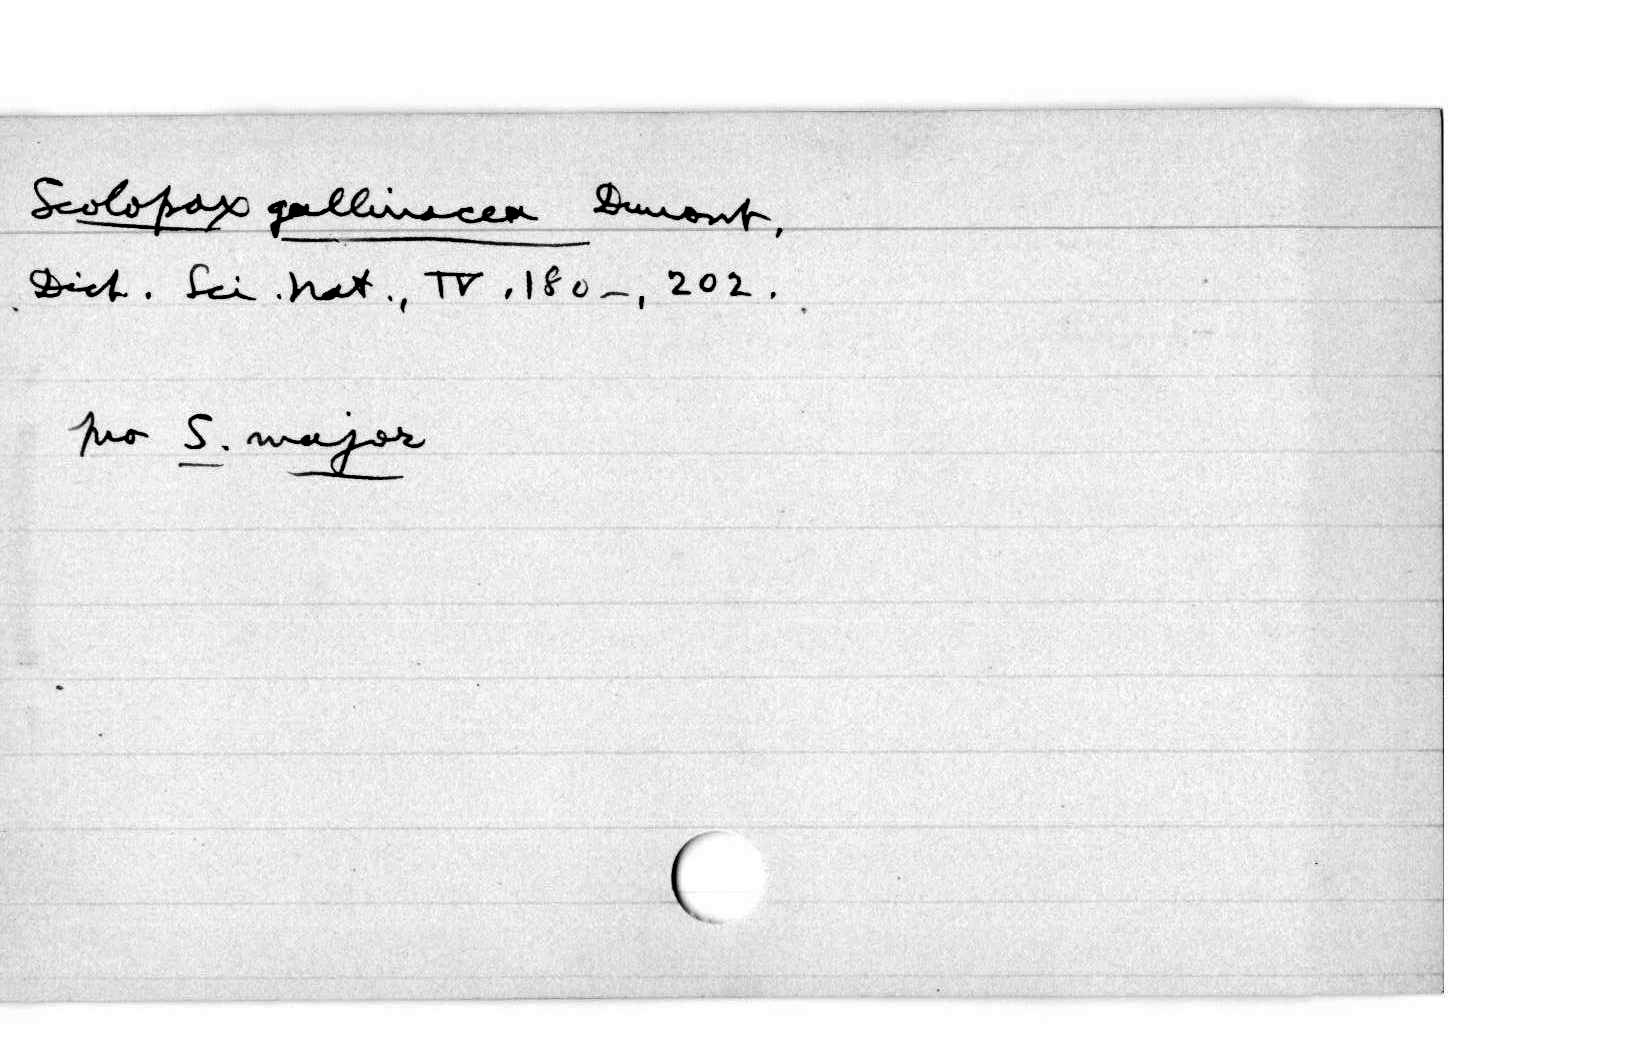 Scolopax gallinacea Dumont,
Dict. Sci. Nat., IV, 180-, 202.
pro S. major